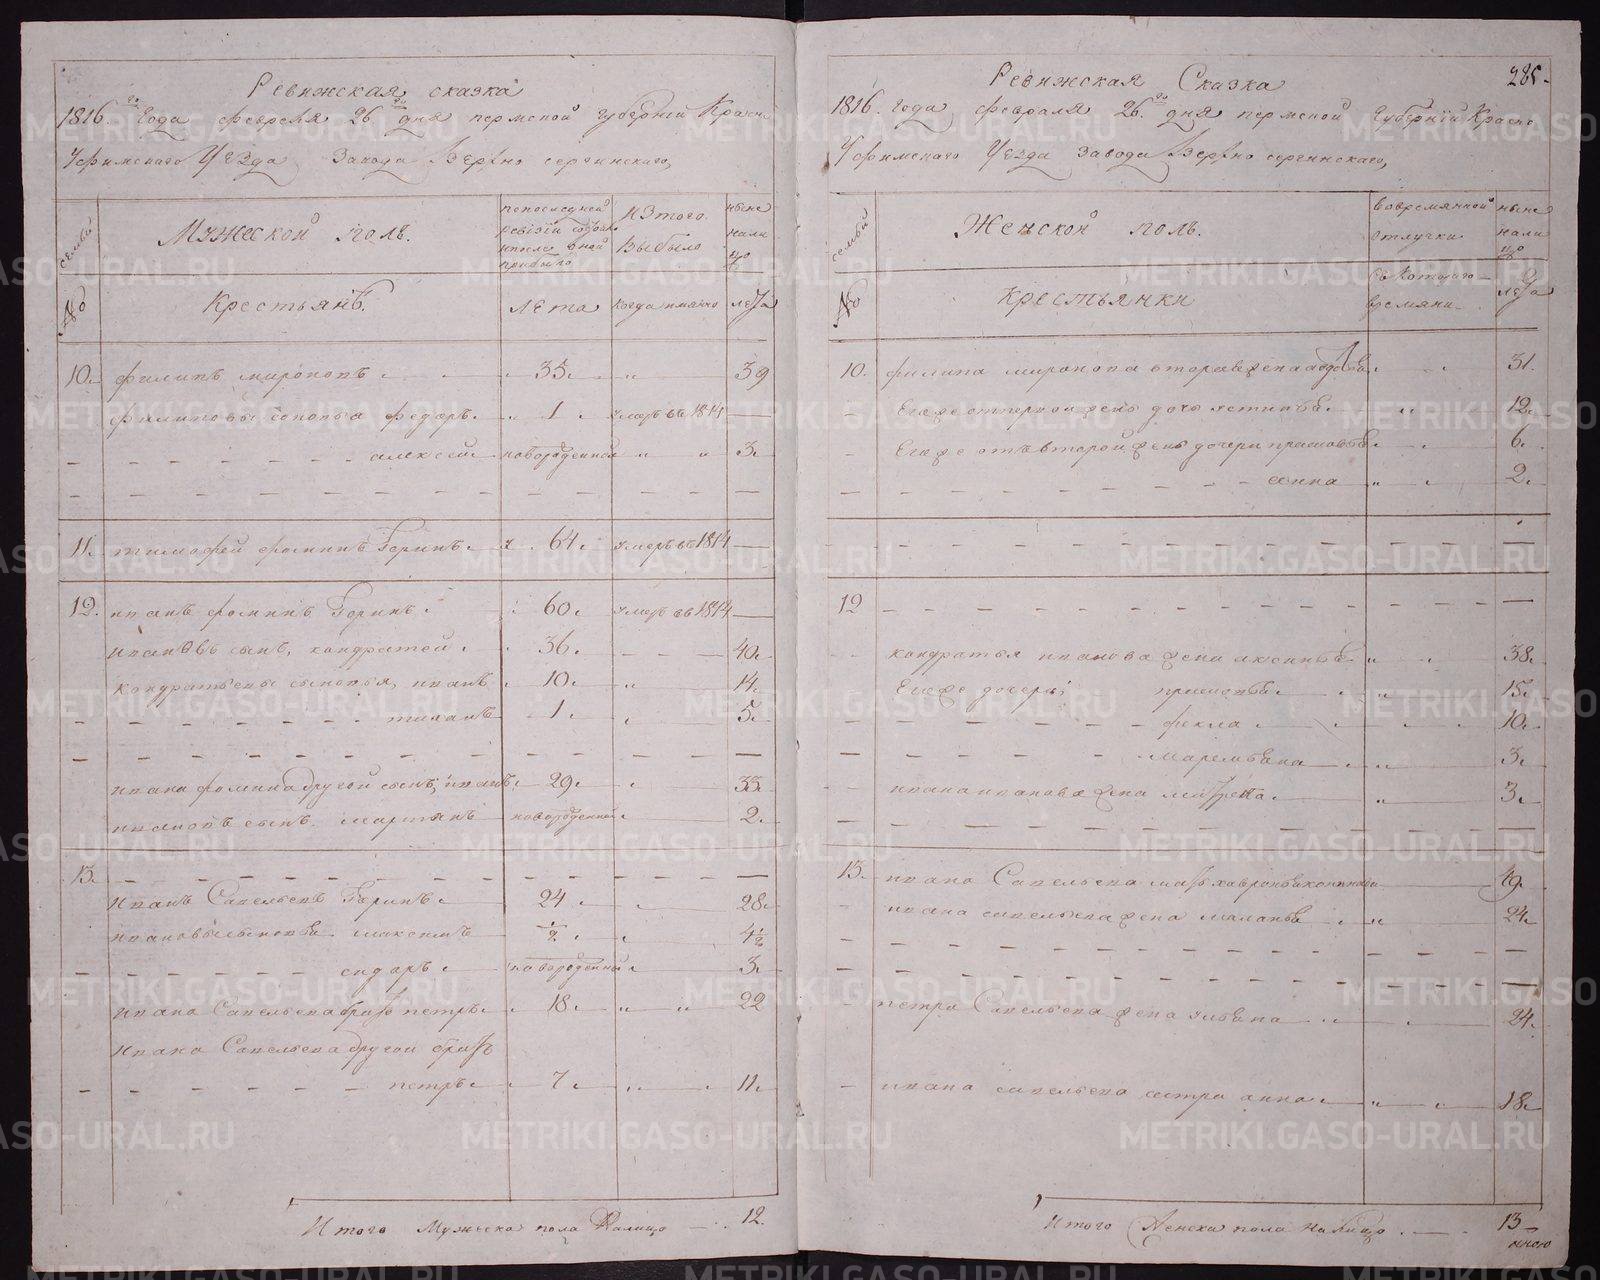 Ревижская сказка
1816го Года февреля 26го дня пермской губернiи Красно
Уфимского Уезда Завода Верхно сергинскаго,
№ семьи
Мужеской полъ.
Крестьянъ.
попоследней ревiзiи состояло ипосле оной прибыло
Лета
Изтого Выбыло
Когда имянно
ныне нали цо
лета
10. филипъ мироновъ 35. 39
филиповы сыновья федоръ. 1. умеръ въ 1814
алексей новорожденной 3.
11. тимофей фоминъ Горинъ. 64. умеръ въ 1814
12. иванъ фоминъ Горинъ 60. умеръ въ 1814
ивановъ сынъ, кондратей 36. 40.
кондратьевы сыновья иванъ 10. 14.
тиханъ 1. 5.
ивана фомина другой сынъ, иванъ 29. 33.
ивановъ сынъ мартынъ новорожденной 2.
13.
Иванъ Савельевъ Горинъ 24 28.
ивановы сыновья максимъ 1/2 4 1/2
сидаръ новорожденной 3.
ивана Савельева братъ петръ 18. 22
Ивана Савельева другой братъ
петръ 7. 11.
Итого Мужеска пола Налицо 12.
285.
Ревижская Сказка
1816. года февраля 26го дня пермской Губернiи Красно
Уфимского Уезда Завода Верхно сергинскаго,
№ семьи
Женской полъ.
Крестьянки
вовремянной отлучки
Съ Котораго времяни
ныне нали цо
лета
10. филипа миронова вторая жена авдотья 31.
Егоже отпервой жены дочь устинья 12.
Егоже отъ второй жены дочери прасковья 6.
анна 2.
12
кондратья иванова жена аксинья 38.
Егоже дочери прасковья 15.
фекла 10.
Маремьяна 3.
ивана иванова жена матрена 3.
13. ивана Савельева мать хавронья 49.
ивана савельева жена маланья 24.
петра Савельева жена ульяна 24.
ивана савельева сестра анна 18.
Итого Женска пола Налицо 13